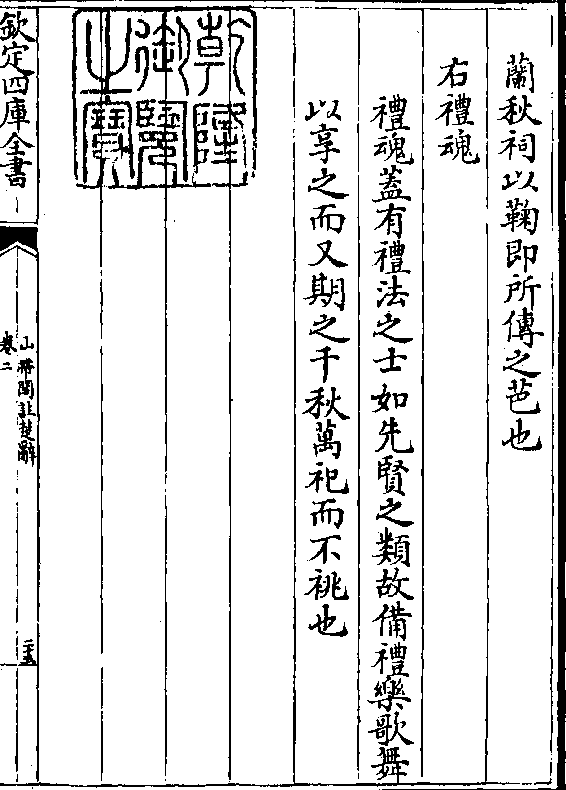 蘭秋祠以鞠即所傳之芭也
右禮魂
禮魂蓋有禮法之士如先賢之類故備禮樂歌舞
以享之而又期之千秋萬祀而不祧也
乾隆
御覽
之寶
欽定四庫全書
山帶閣註楚辭
卷二
二十五